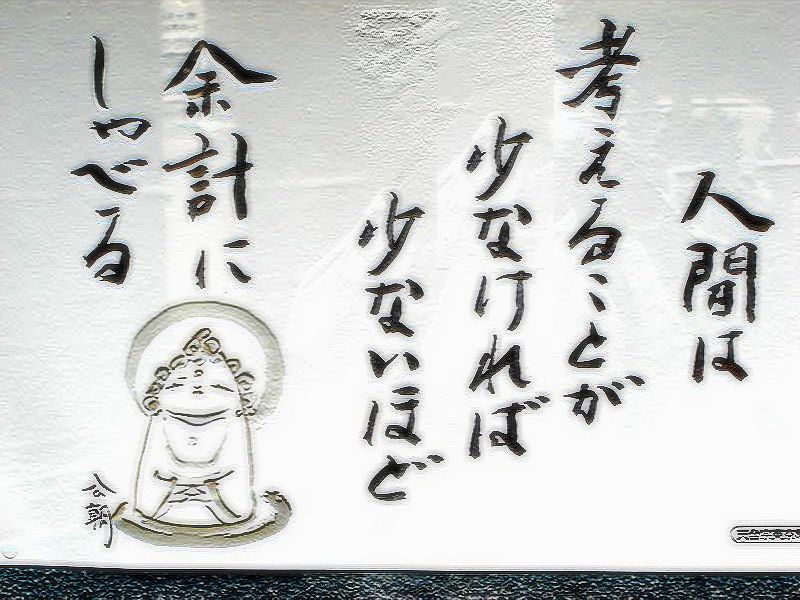 人間は
考えることが
少なければ
少ないほど
余計に
しゃべる
公朝